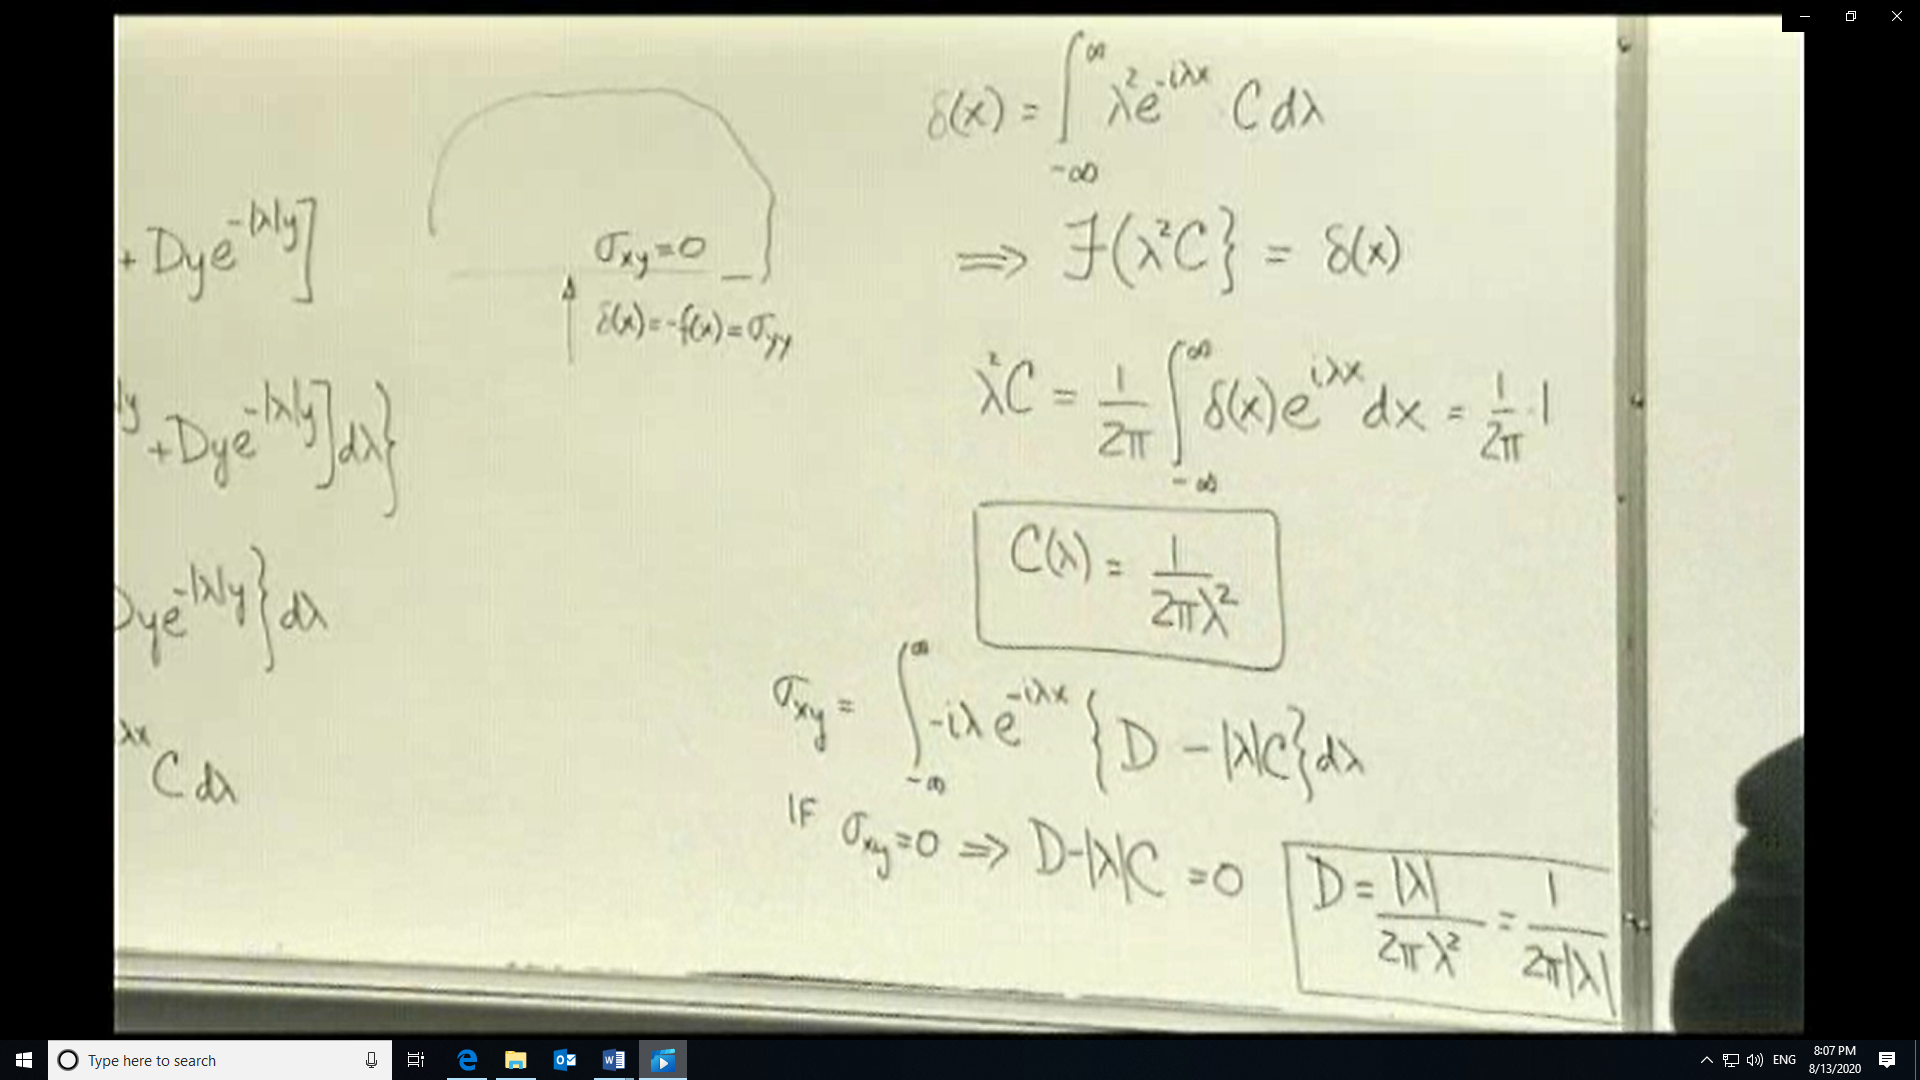 + Dye^{-|λ|y}]
+ Dye^{-|λ|y}]dλ}
Dye^{-|λ|y}}dλ
C dλ
σ_{xy} = 0
δ(x) = -f(x) = σ_{yy}
δ(x) = ∫_{-∞}^{∞} λ² e^{-iλx} C dλ
⟹ ℱ(λ²C} = δ(x)
λ²C = 1/2π ∫_{-∞}^{∞} δ(x)e^{iλx} dx = 1/2π · 1
C(λ) = 1/2πλ²
σ_{xy} = ∫_{-∞}^{∞} -iλ e^{-iλx} {D - |λ|C} dλ
IF σ_{xy} = 0 ⟹ D - |λ|C = 0
D = |λ|/2πλ² = 1/2π|λ|
Type here to search
ENG
8:07 PM
8/13/2020